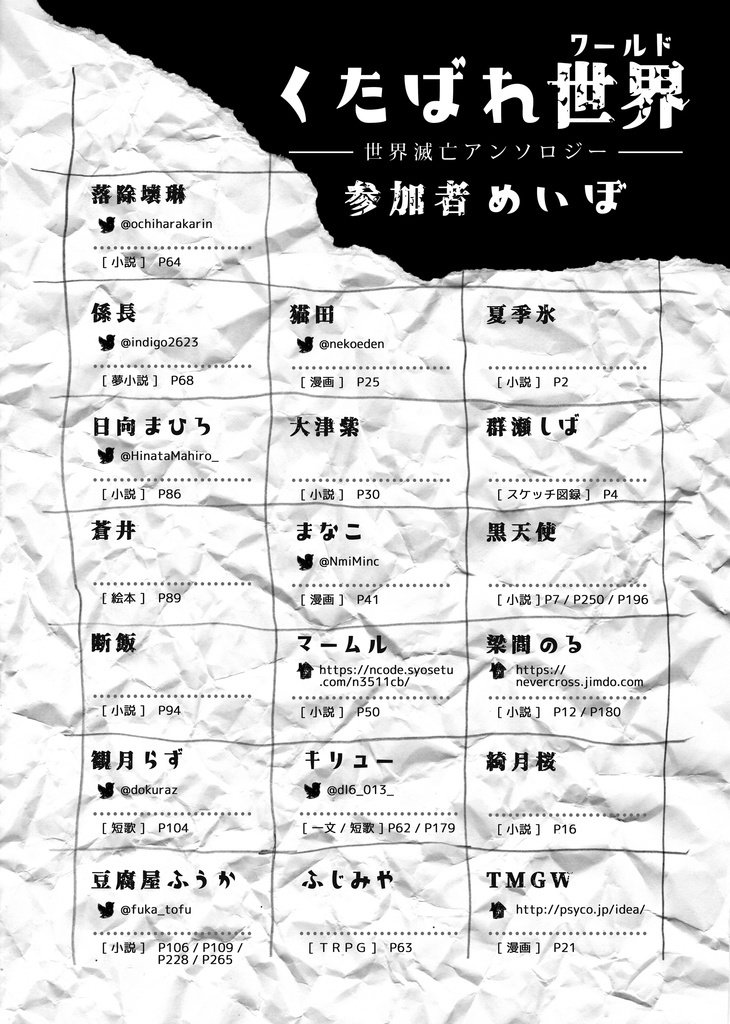 ワールド
くたばれ世界
世界滅亡アンソロジー
参加者めいぼ
落除壊琳
@ochiharakarin
[ 小説 ] P64
係長
@indigo2623
[ 夢小説 ] P68
猫田
@nekoeden
[ 漫画 ] P25
夏季氷
[ 小説 ] P2
日向まひろ
@HinataMahiro_
[ 小説 ] P86
大津紫
[ 小説 ] P30
群瀬しば
[ スケッチ図録 ] P4
蒼井
[ 絵本 ] P89
まなこ
@NmiMinc
[ 漫画 ] P41
黒天使
[ 小説 ] P7 / P250 / P196
断飯
[ 小説 ] P94
マームル
https://ncode.syosetu
.com/n3511cb/
[ 小説 ] P50
梁間のる
https://
nevercross.jimdo.com
[ 小説 ] P12 / P180
観月らず
@dokuraz
[ 短歌 ] P104
キリュー
@dl6_013_
[ 一文 / 短歌 ] P62 / P179
綺月桜
[ 小説 ] P16
豆腐屋ふうか
@fuka_tofu
[ 小説 ] P106 / P109 /
P228 / P265
ふじみや
[ TRPG ] P63
TMGW
http://psyco.jp/idea/
[ 漫画 ] P21